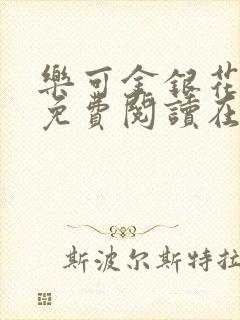 樂可金銀花
免費閱讀在
斯波尔斯特拉